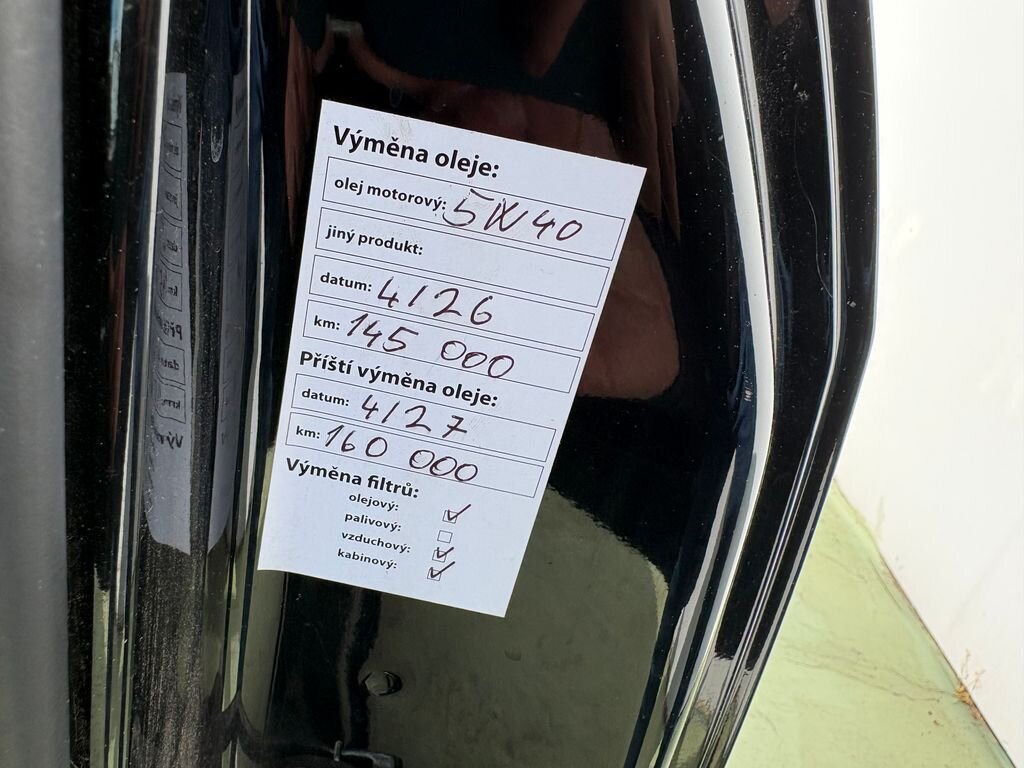 Výměna oleje:
olej motorový: 5W40
jiný produkt:
datum: 4/26
km: 145 000
Příští výměna oleje:
datum: 4/27
km: 160 000
Výměna filtrů:
olejový: ✓
palivový: ☐
vzduchový: ✓
kabinový: ✓